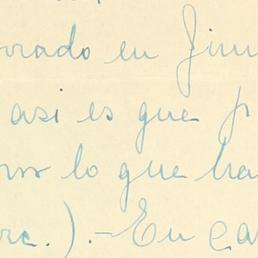 rado en Jun
asi es que p
lo que ha
rc.).- En ca